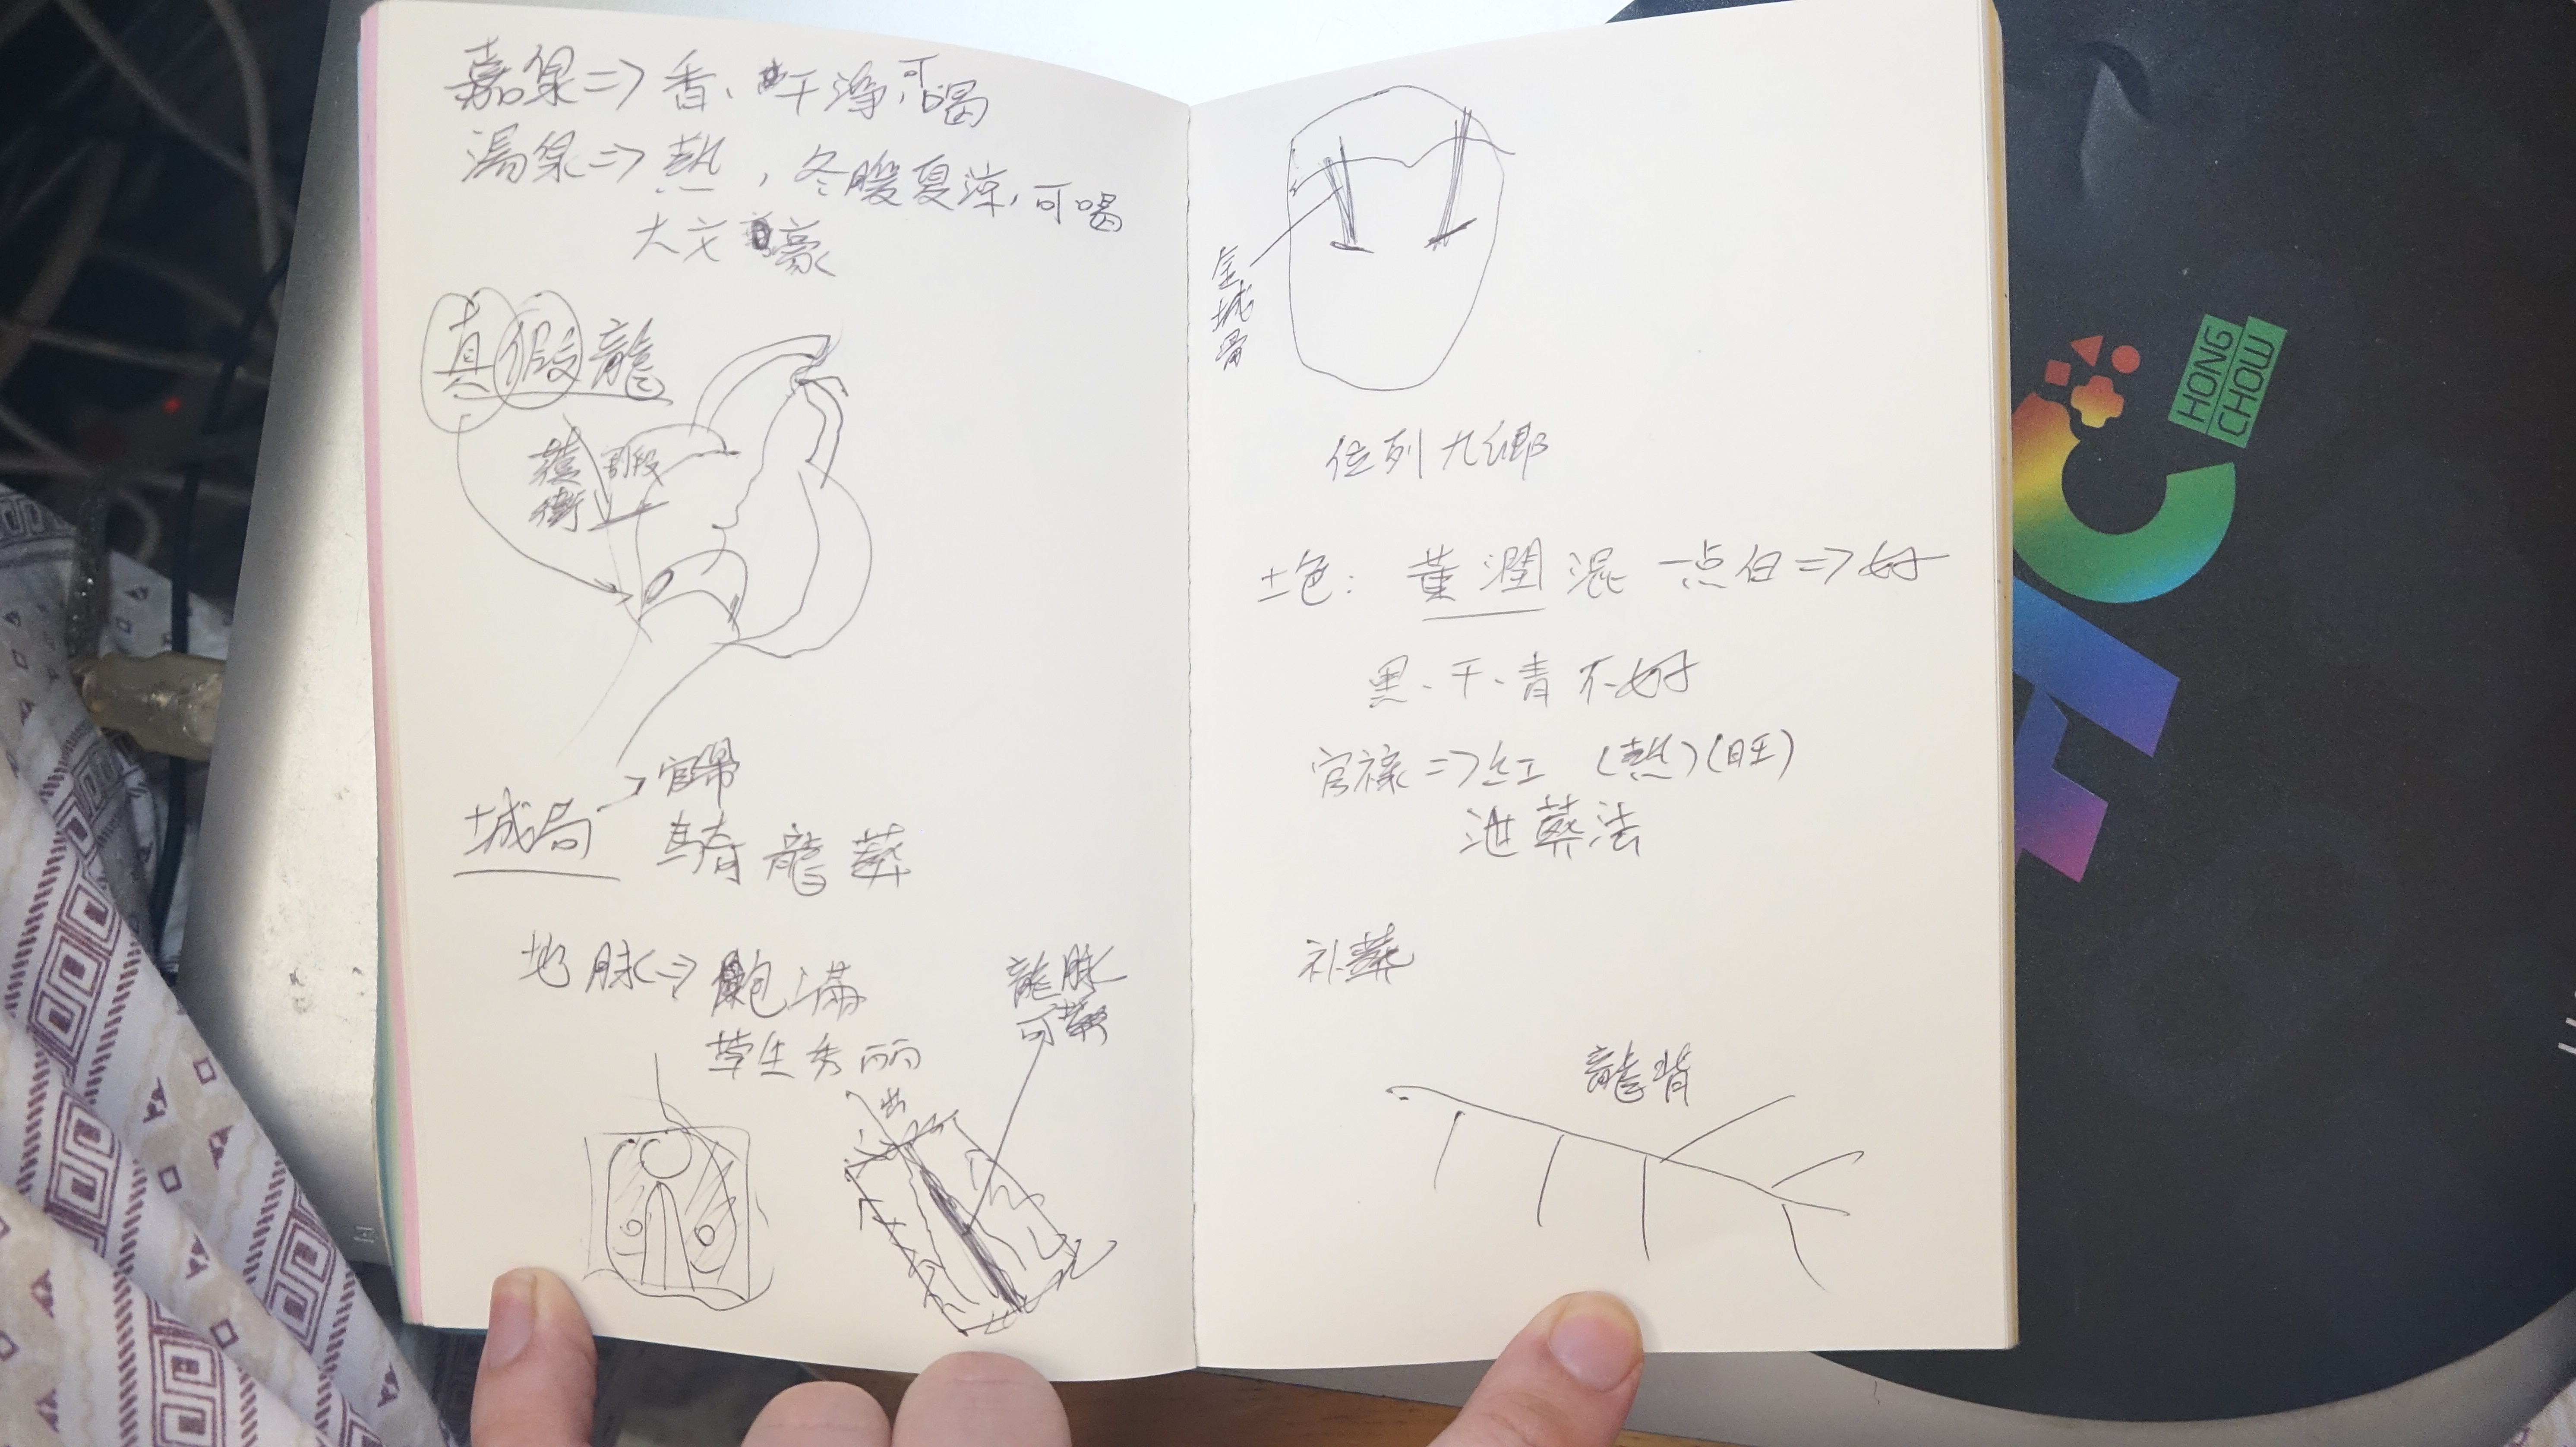 嘉泉=>香、干淨,可喝
湯泉=>熱,冬暖夏涼,可喝
大文豪
真假龍
城局
騎龍葬
地脉=>飽滿
草生秀丽
龍脉
可葬
出
金
城
骨
位列九鄉
土色: 黃潤混一点白=>好
黑、干、青不好
官祿=>红 (熱)(旺)
泄葬法
补葬
龍背
HONG
CHOW
HC